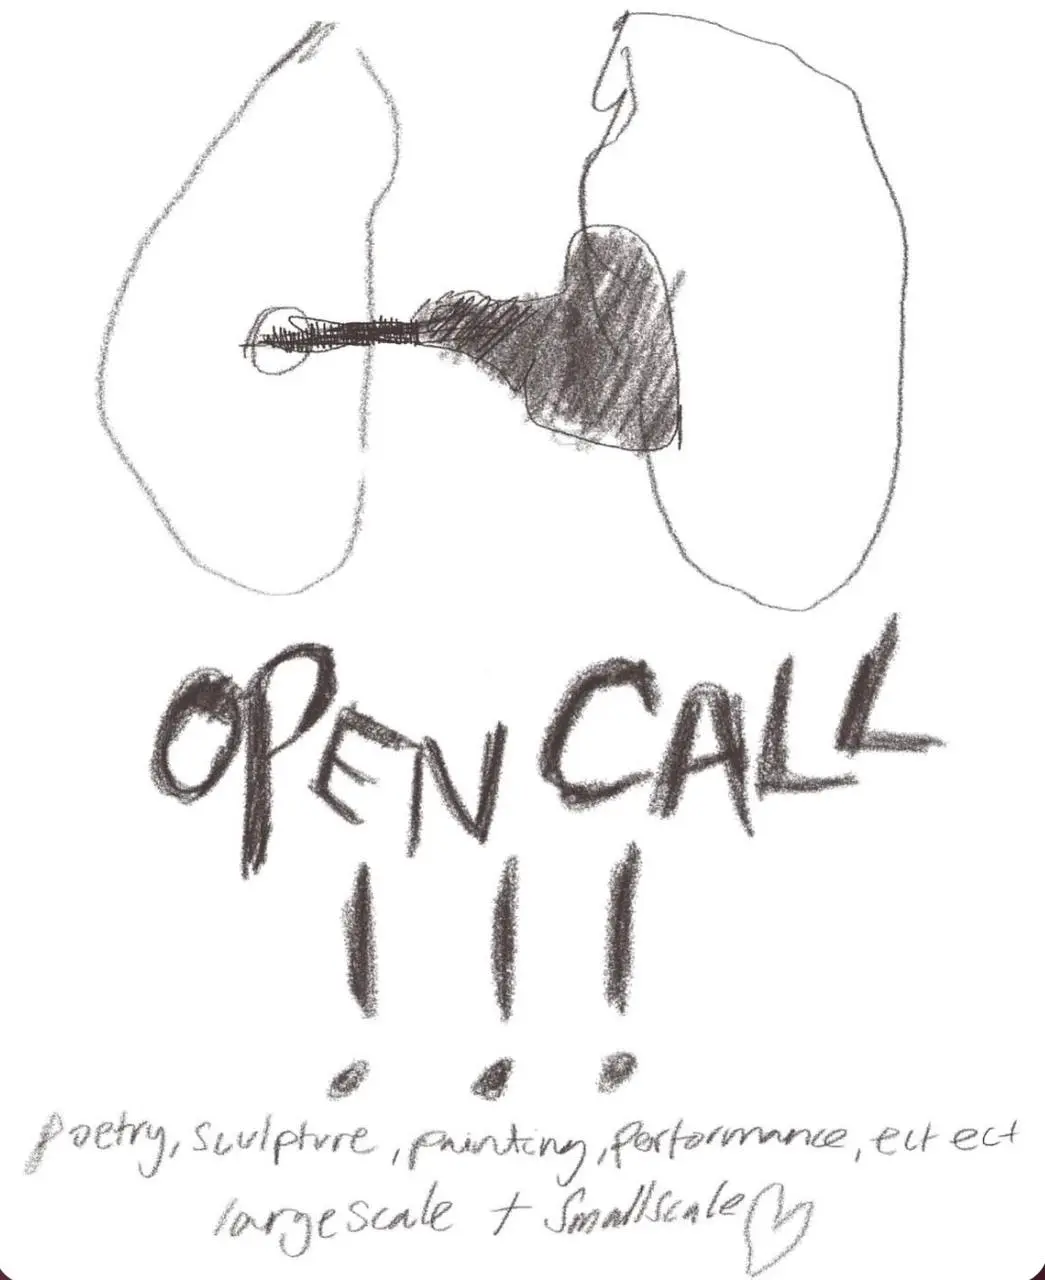 OPEN CALL
!!!
poetry, sculpture, painting, performance, ect ect
large scale + Smallscale